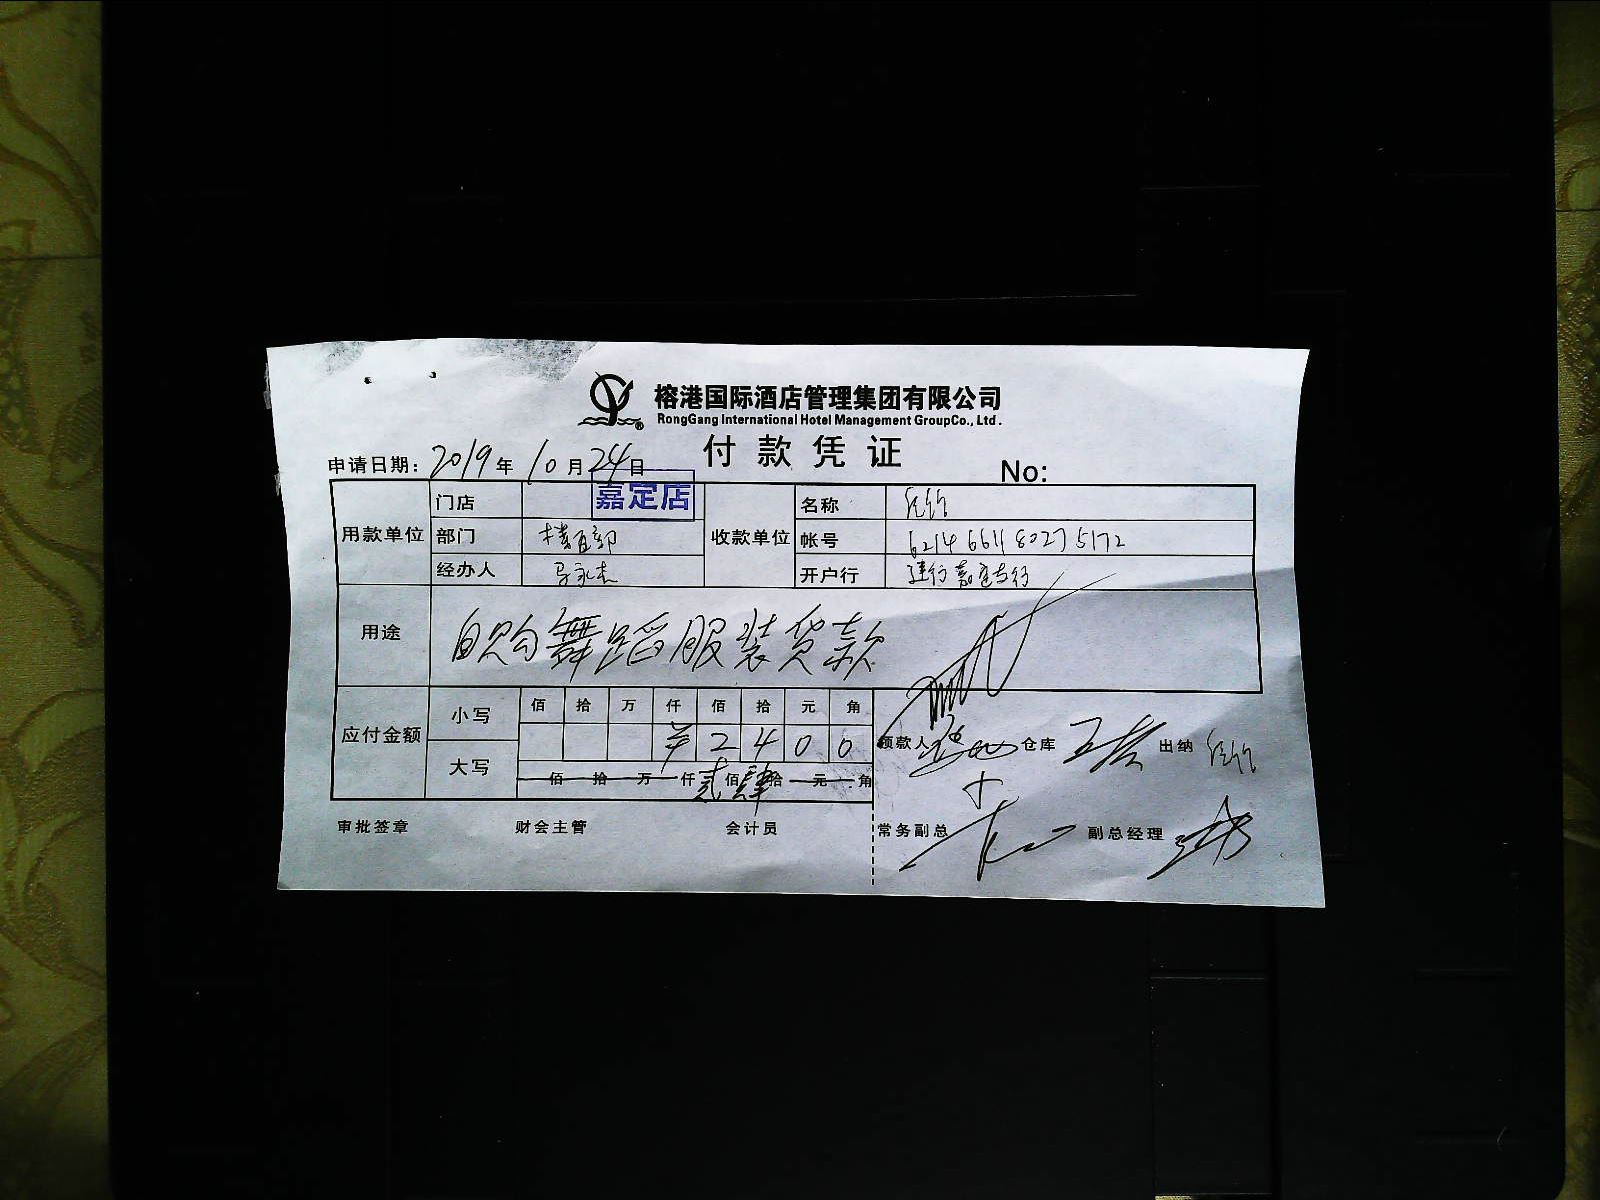 榕港国际酒店管理集团有限公司
RongGang International Hotel Management GroupCo., Ltd.
付款凭证
申请日期: 2019年10月24日 No:
用款单位 门店 嘉定店 收款单位 名称
部门 楼面部 帐号 6214 6611 8027 5172
经办人 马永杰 开户行 建行嘉定支行
用途 自购舞蹈服装货款
应付金额 小写 佰 拾 万 仟 佰 拾 元 角
¥ 2 4 0 0
大写 佰 拾 万 仟 贰 佰 肆 拾 元 角
领款人 仓库 出纳
审批签章 财会主管 会计员 常务副总 副总经理